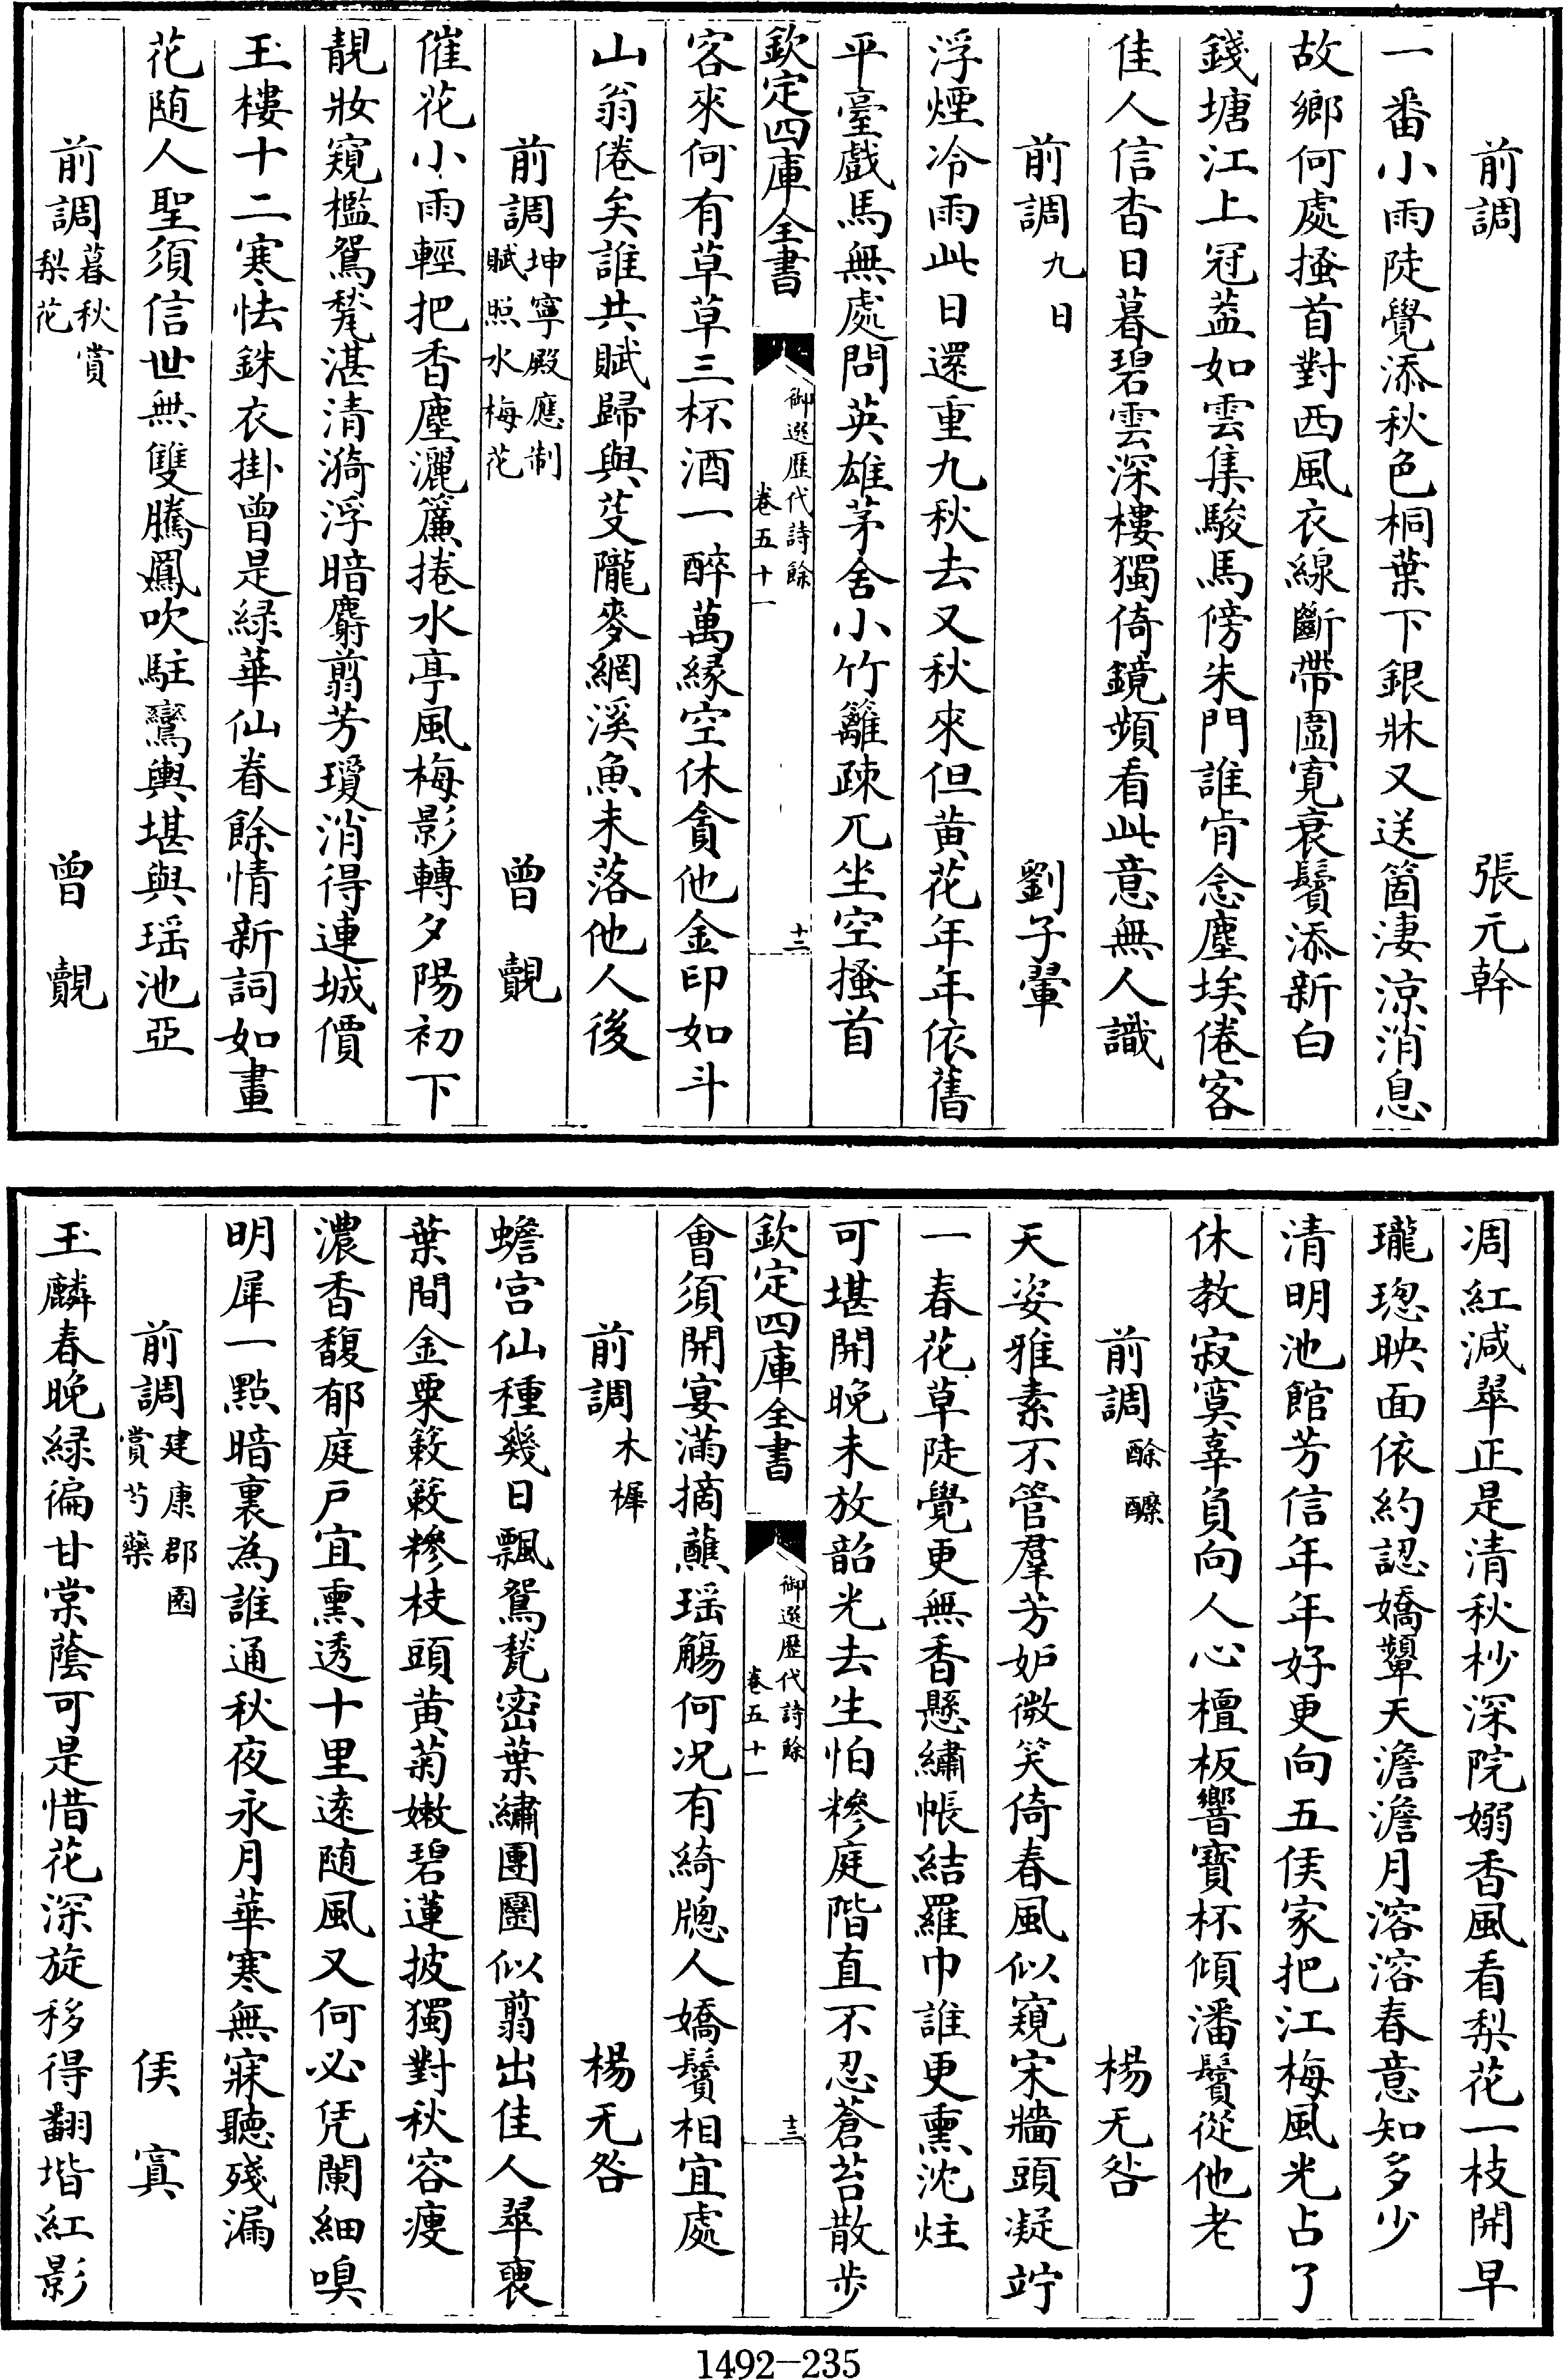 前調　張元幹
一番小雨陡覺添秋色桐葉下銀牀又送箇淒涼消息
故鄉何處搔首對西風衣線斷帶圍寬衰鬢添新白
錢塘江上冠葢如雲集駿馬傍朱門誰肯念塵埃倦客
佳人信杳日暮碧雲深樓獨倚鏡頻看此意無人識
前調九日　劉子翬
浮煙冷雨此日還重九秋去又秋來但黄花年年依舊
平臺戲馬無處問英雄茅舍小竹籬疎兀坐空搔首
欽定四庫全書　御選歷代詩餘　卷五十一　十二
客來何有草草三杯酒一醉萬緣空休貪他金印如斗
山翁倦矣誰共賦歸與芟隴麥網溪魚未落他人後
前調坤寧殿應制賦照水梅花　曾覿
催花小雨輕把香塵灑簾捲水亭風梅影轉夕陽初下
靚妝窺檻鴛甃湛清漪浮暗麝翦芳瓊消得連城價
玉樓十二寒怯銖衣掛曾是緑華仙眷餘情新詞如畫
花随人聖須信世無雙騰鳳吹駐鸞輿堪與瑶池亞
前調暮秋賞梨花　曾覿
凋紅減翠正是清秋杪深院嫋香風看梨花一枝開早
瓏璁映面依約認嬌顰天澹澹月溶溶春意知多少
清明池館芳信年年好更向五侯家把江梅風光占了
休教寂寞辜負向人心檀板響寶杯傾潘鬢從他老
前調酴醿　楊无咎
天姿雅素不管羣芳妒微笑倚春風似窺宋牆頭凝竚
一春花草陡覺更無香懸繡帳結羅巾誰更熏沈炷
可堪開晚未放韶光去生怕糝庭階直不忍蒼苔散步
欽定四庫全書　御選歷代詩餘　卷五十一　十三
會須開宴滿摘蘸瑶觴何况有綺牕人嬌鬢相宜處
前調木樨　楊无咎
蟾宫仙種幾日飄鴛甃密葉繡團團似翦出佳人翠褏
葉間金粟簌簌糝枝頭黄菊嫩碧蓮披獨對秋容瘦
濃香馥郁庭戸宜熏透十里遠随風又何必凭闌細嗅
明犀一點暗裏為誰通秋夜永月華寒無寐聽殘漏
前調建康郡圃賞芍藥　侯寘
玉麟春晚緑徧甘棠蔭可是惜花深旋移得翻堦紅影
1492—235